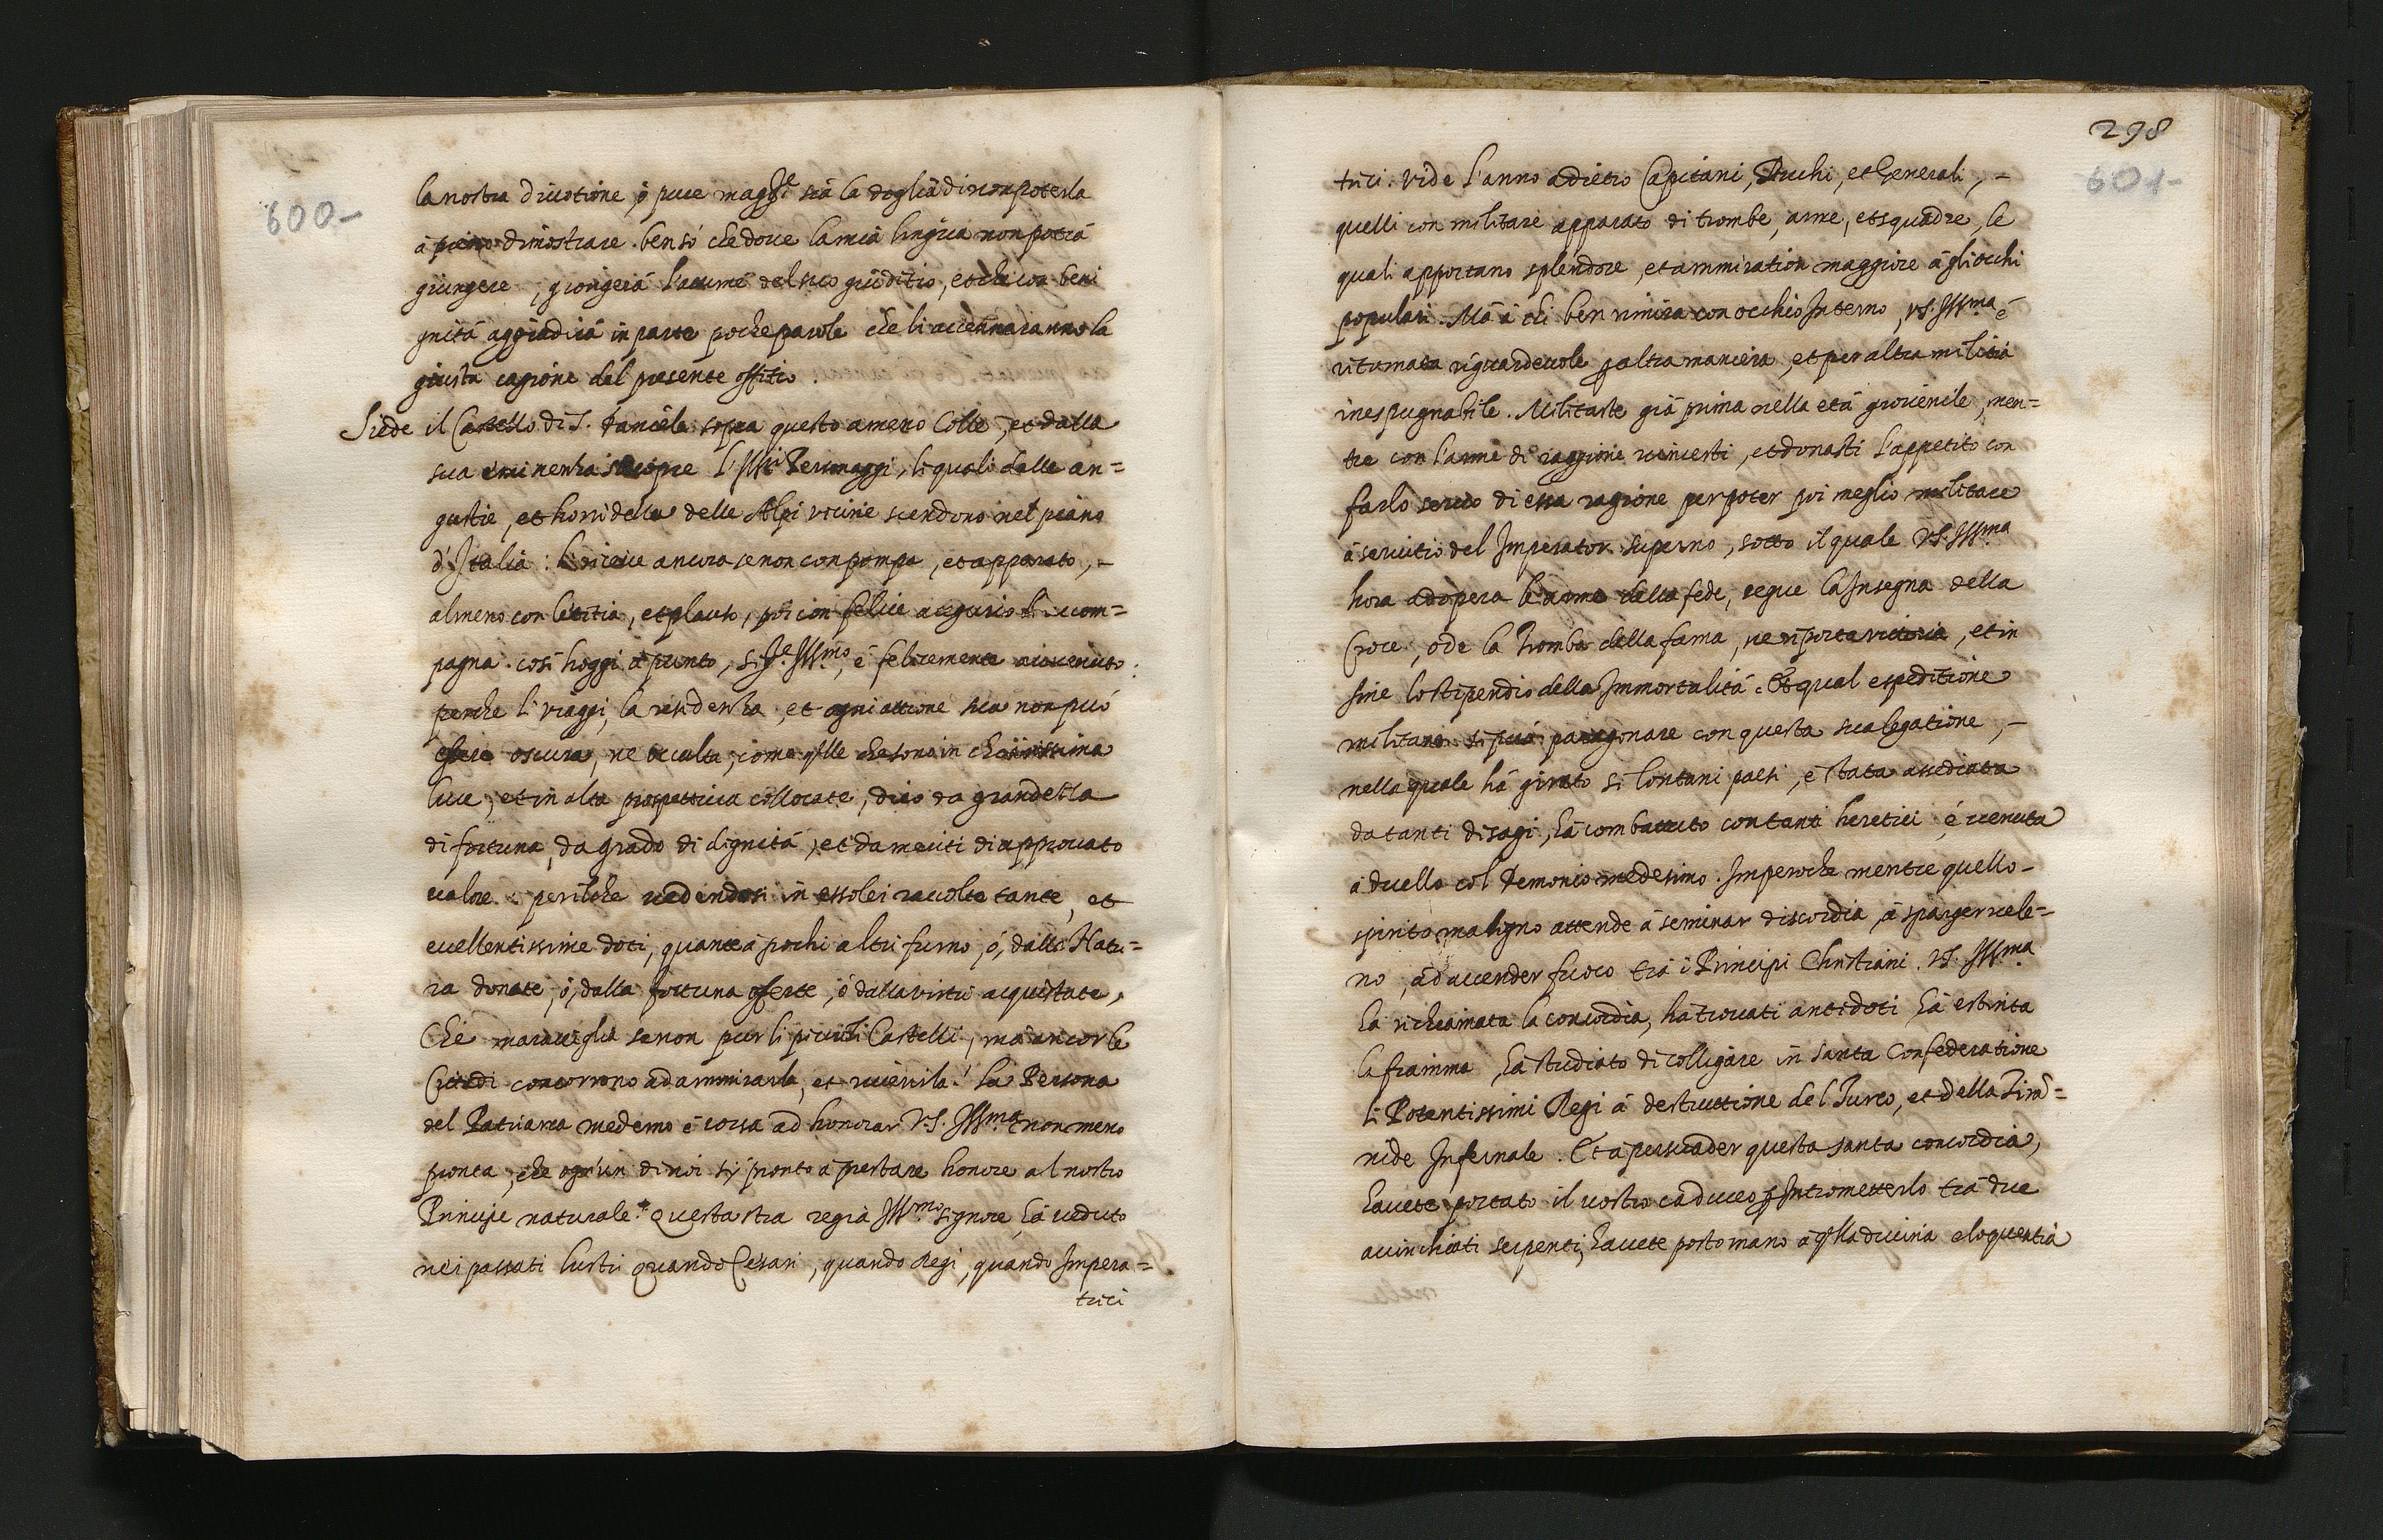 600-
la nostra divotione, ó pure magg.re sia la doglia di non poterla
á pieno dimostrare. ben só che dove la mia lingua non potrá
giungere, giongerá l'acume del suo giuditio, et che con beni
gnitá aggradirá in parte poche parole che li accennaranno la
giusta cagione del presente offitio.
Siede il Castello di S. Daniele sopra questo ameno Colle, et dalla
sua eminenza scuopre l'Ill.i Personaggi, li quali dalle an=
gustie, et horridezze delle Alpi vicine scendono nel piano
d'Italia: li riceve ancora se non con pompa, et apparato, -
almeno con letitia, et plauso, poi con felice augurio li accom=
pagna. cosi hoggi á punto, Sig.re Ill.mo, é felicemente avvenuto:
perche li viaggi, la residenza, et ogni attione sua non puó
essere oscura, ne occulta, come q.lle che sono in chiarissima
luce, et in alta prospettiva collocate, dico da grandezza
di fortuna, da grado di dignitá, et da meriti di approvato
valore. perilche vedendosi in esso lei raccolte tante, et
eccellentissime doti, quante á pochi altri furno, ó, dalla Natu=
ra donate, ó, dalla fortuna oferte, ó dalla virtú acquistate,
Che maraviglia se non pur li piccoli Castelli, má ancor le
Cittadi concorrono ad ammirarla, et riverirla! La Persona
del Patriarca medemo é corsa ad honorar V.S. Ill.ma non meno
pronta, che ogn'un di noi sij pronto á prestare honore al nostro
Principe naturale. Questa stra regia Ill.mo Signore, há veduto
nei passati lustri quando Cesari, quando Regi, quando Impera=
trici
298
601-
trici. vide l'anno adietro Capitani, Duchi, et Generali, -
quelli con militare apparato di trombe, arme, et squadre, le
quali apportano splendore, et ammiration maggiore á gli occhi
populari. Má á chi ben rimira con occhio Interno, V.S. Ill.ma é
ritornata riguardevole p altra maniera, et per altra militia
inespugnabile. Militaste giá prima nella etá giovenile, men=
tre con l'arme di raggione vincesti, et donasti l'appetito con
farlo servo di essa ragione per poter poi meglio militare
á servitio del Imperator superno, sotto il quale V.S. Ill.ma
hora adopera le arme della fede, segue la Insegna della
Croce, ode la Tromba della fama, ne riporta vittoria, et in
fine lo stipendio della Immortalitá. Et qual espeditione
militare si puó paragonare con questa sua legatione, -
nella quale há girato si lontani paesi, é stata assediata
da tanti disagi, há combattuto con tanti heretici é venuta
á duello col Demonio medesimo. Imperoche mentre quello -
spirito maligno attende á seminar discordia, á sparger vele=
no, ad accender fuoco trá i Principi Christiani. V.S. Ill.ma
há richiamata la concordia, há trovati antidoti há estinta
la fiamma, há studiato di colligare in santa Confederatione
li Potentissimi Regi á destruttione del Turco, et della Tirã=
nide Infernale. Et á persuader questa santa concordia,
havete portato il vostro caduceo p Intrometterlo trá due
avinchiati serpenti, havete posto mano á q.lla divina eloquentia